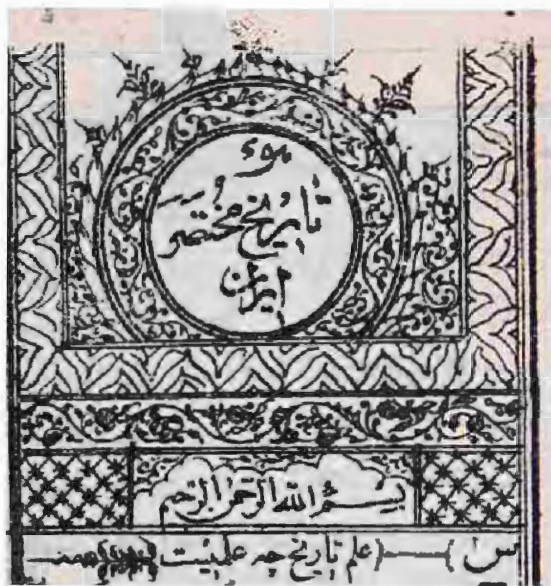 تاریخ مختصر
ایران
بسم الله الرحمن الرحیم
س) (علم تاریخ چه علمیست